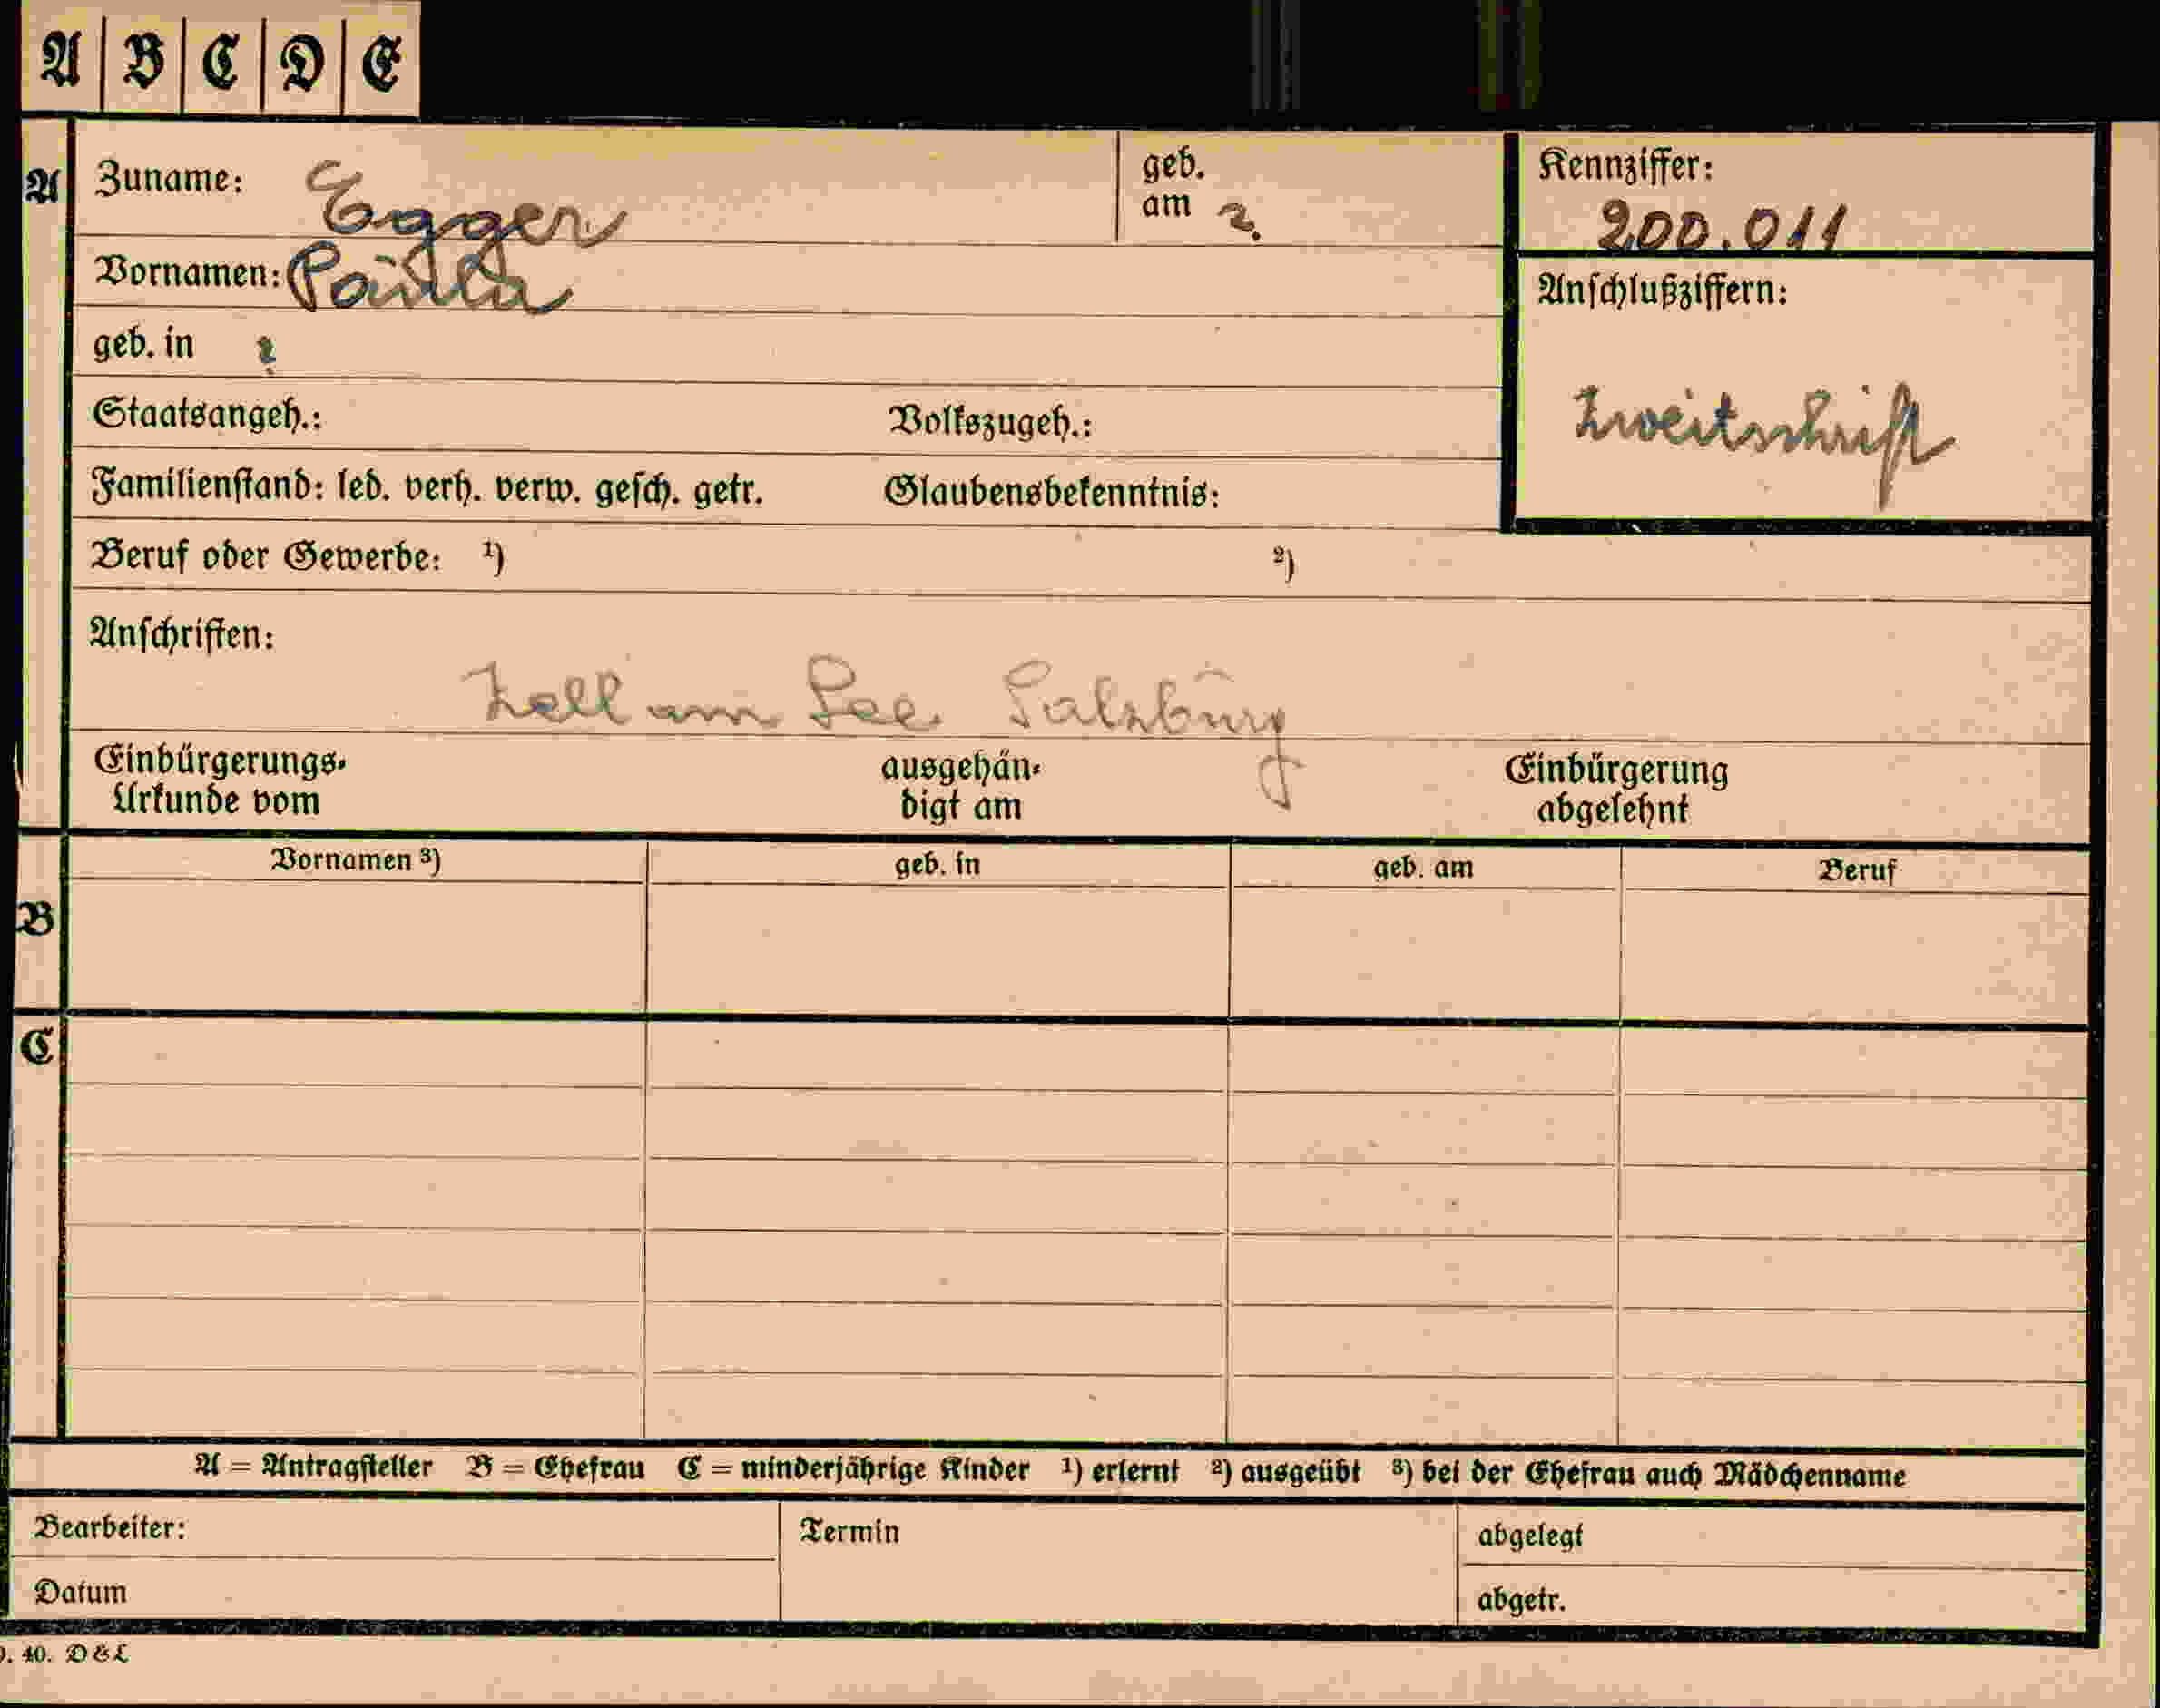 A B C D E
A Zuname: Egger geb. am ?
Kennziffer: 200.011
Vornamen: Paula
Anschlußziffern: Zweitschrift
geb. in ?
Staatsangeh.: Volkszugeh.:
Familienstand: led. verh. verw. gesch. getr. Glaubensbekenntnis:
Beruf oder Gewerbe: ¹) ²)
Anschriften:
Zell am See Salzburg
Einbürgerungs- ausgehän- Einbürgerung
Urkunde vom digt am abgelehnt
Vornamen ³) geb. in geb. am Beruf
B
C
A = Antragsteller B = Ehefrau C = minderjährige Kinder ¹) erlernt ²) ausgeübt ³) bei der Ehefrau auch Mädchenname
Bearbeiter: Termin abgelegt
Datum abgetr.
40. D & L